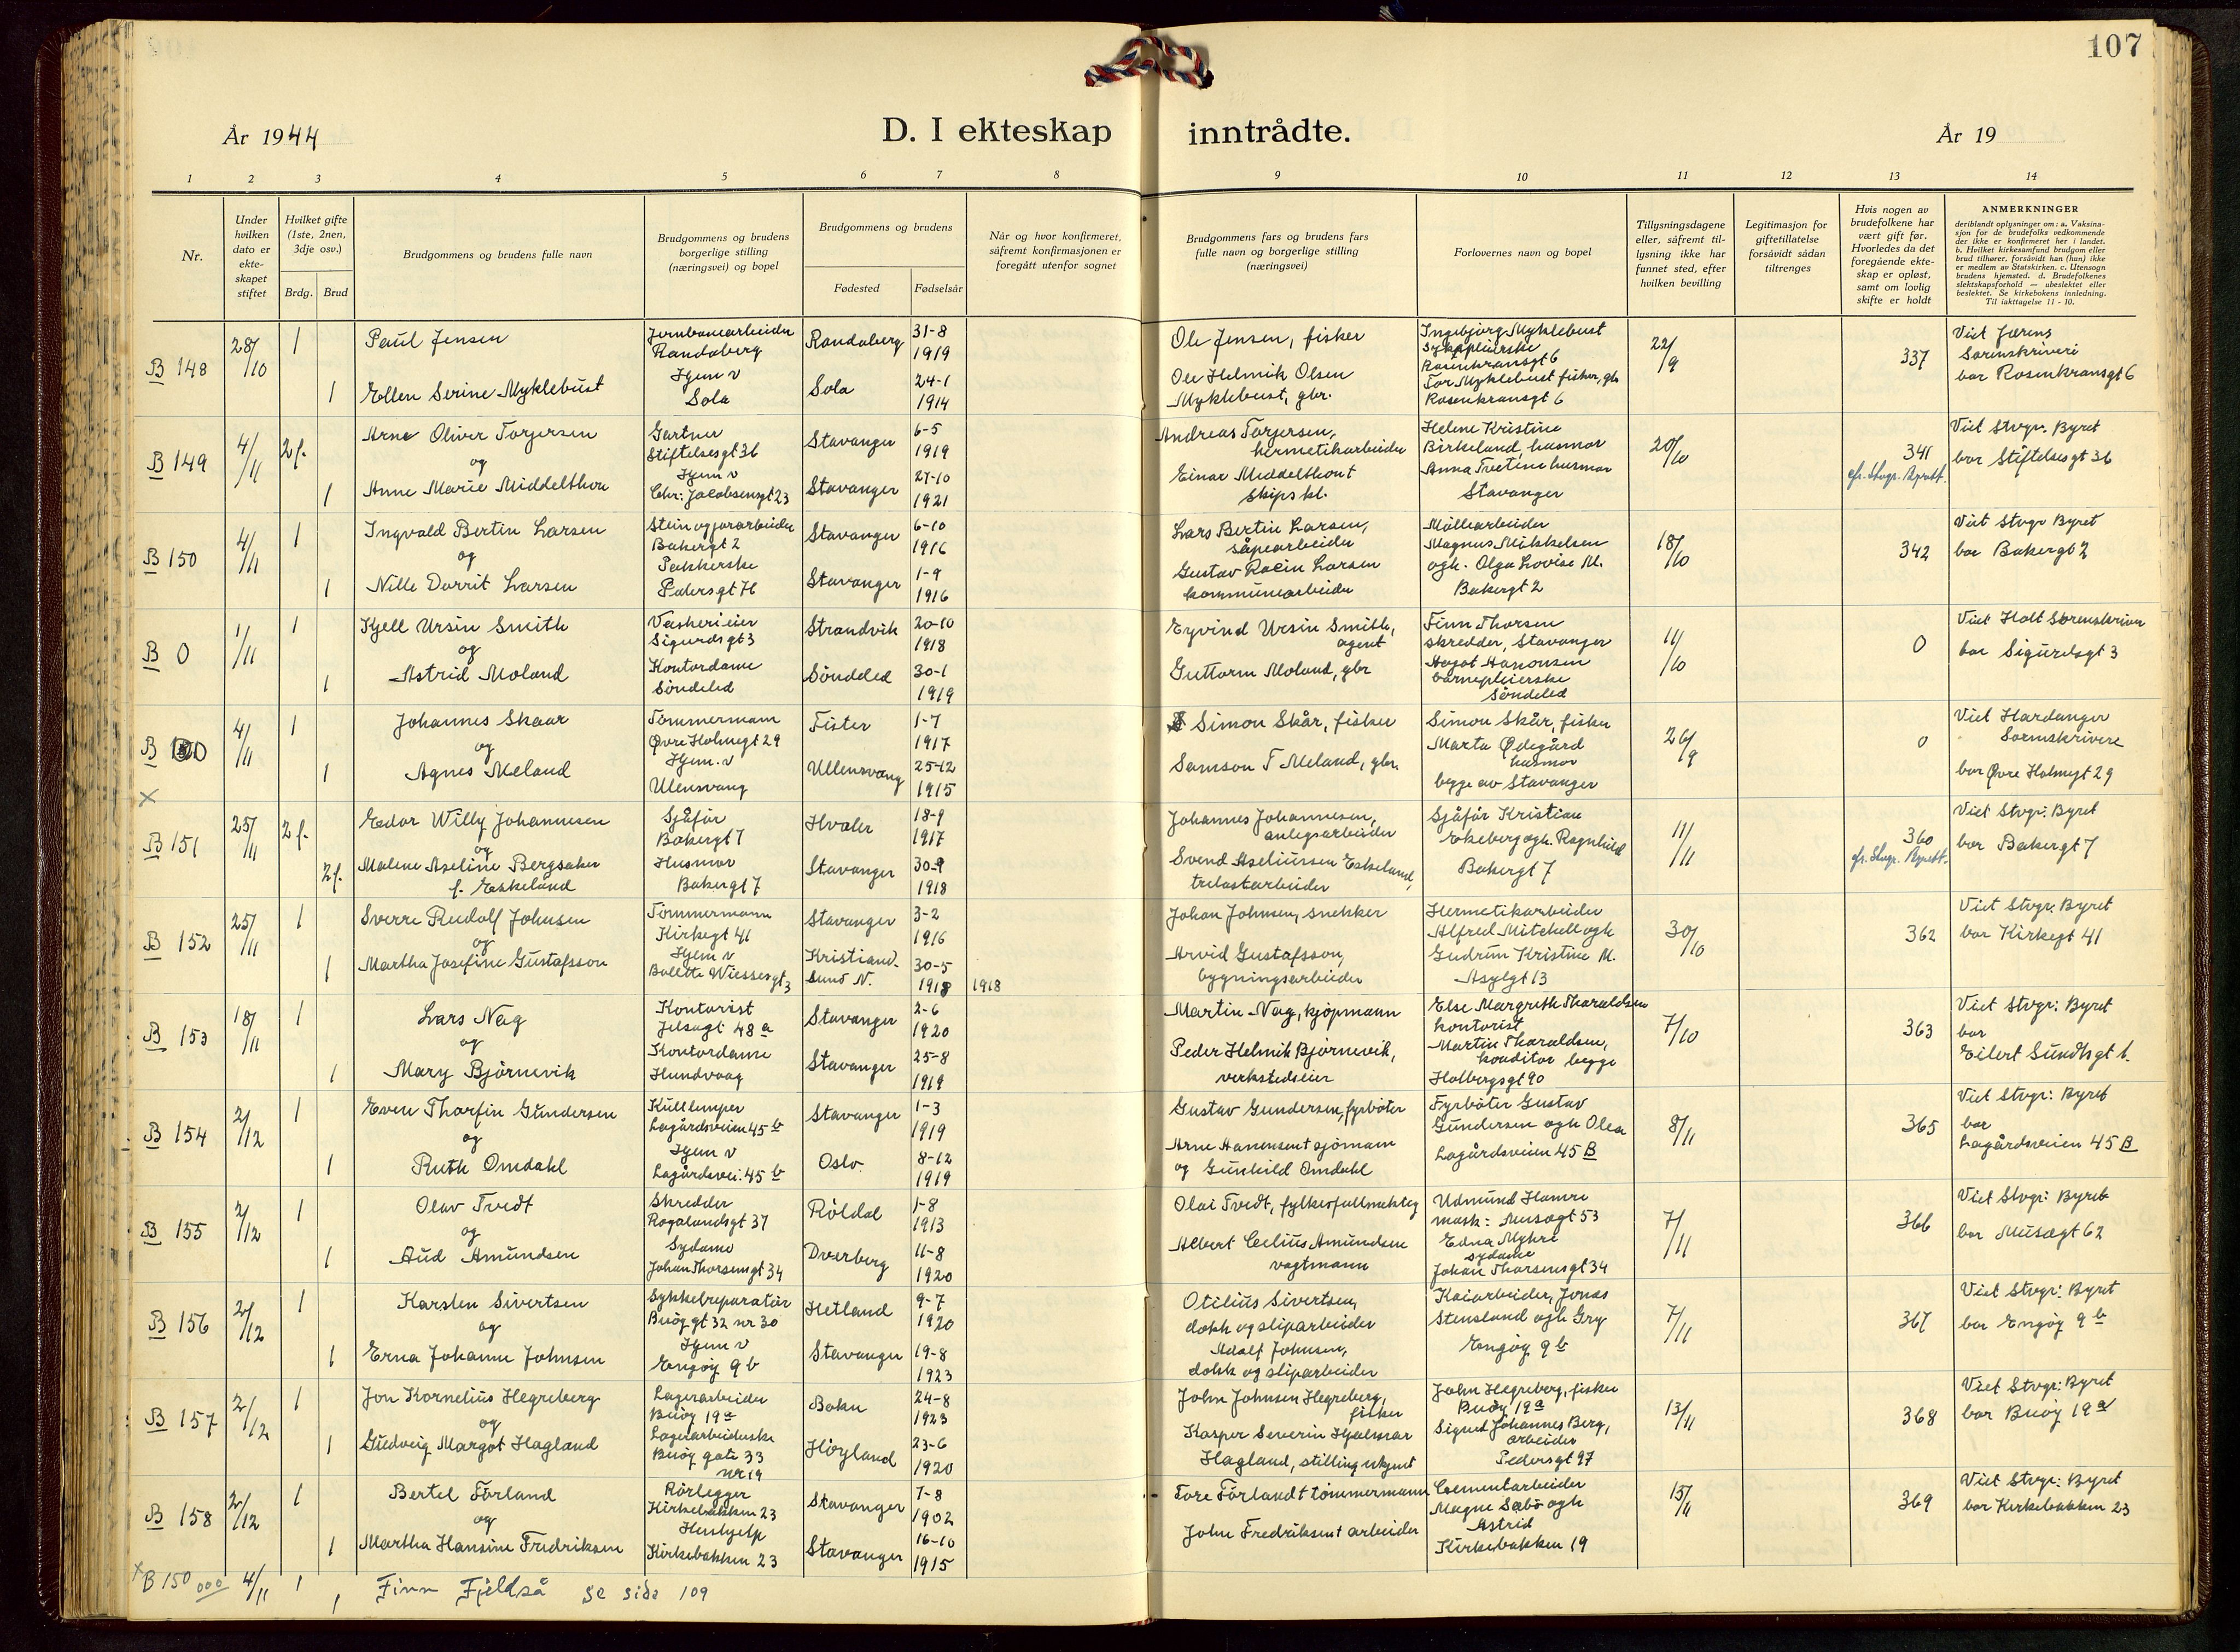 107
År 1944
D. I ekteskap inntrådte.
År 19
1 2 3 4 5 6 7 8 9 10 11 12 13 14
Nr.
Under hvilken dato er ekte-skapet stiftet
Hvilket gifte (1ste, 2nen, 3dje osv.)
Brdg. Brud
Brudgommens og brudens fulle navn
Brudgommens og brudens borgerlige stilling (næringsvei) og bopel
Brudgommens og brudens
Fødested Fødselsår
Når og hvor konfirmeret, såfremt konfirmasjonen er foregått utenfor sognet
Brudgommens fars og brudens fars fulle navn og borgerlige stilling (næringsvei)
Forlovernes navn og bopel
Tillysningsdagene eller, såfremt til-lysning ikke har funnet sted, efter hvilken bevilling
Legitimasjon for giftetillatelse forsåvidt sådan tiltrenges
Hvis nogen av brudefolkene har vært gift før. Hvorledes da det foregående ekte-skap er opløst, samt om lovlig skifte er holdt
ANMERKNINGER
deriblandt oplysninger om: a. Vaksina-sjon for de brudefolks vedkommende der ikke er konfirmeret her i landet. b. Hvilket kirkesamfund brudgom eller brud tilhører, forsåvidt han (hun) ikke er medlem av Statskirken. c. Utensogn brudens hjemsted. d. Brudefolkenes slektskapsforhold — ubeslektet eller beslektet. Se kirkebokens innledning. Til iakttagelse 11 - 10.
B 148 28/10 1 Paul Jensen Jernbanearbeider Randaberg Randaberg 31-8 1919 Ole Jensen, fisker Ingebjørg Myklebust sykepleierske Rosenkransgt 6 22/9 337 Viet Jærens Sorenskriveri
1 Ellen Serine Myklebust Hjem v Sola Sola 24-1 1914 Ole Helmik Olsen Myklebust, gbr. Tor Myklebust fisker, gbr Rosenkransgt 6 bor Rosenkransgt 6
B 149 4/11 2f. Arne Oliver Torjersen Gartner Stiftelsesgt 36 Stavanger 6-5 1919 Andreas Torjersen, hermetikarbeider Helene Kristine Birkeland, husmor 20/10 341 Viet Stvgr. Byret
og
1 Anne Marie Middelthon Hjem v Chr: Jacobsensgt 23 Stavanger 27-10 1921 Einar Middelthon t skipskl. Anna Tveten husmor Stavanger bor Stiftelsesgt 36
B 150 4/11 1 Ingvald Bertin Larsen Stein og jorarbeider Bakergt 2 Stavanger 6-10 1916 Lars Bertin Larsen, såpearbeider Møllearbeider Magnus Mikkelsen 18/10 342 Viet Stvgr Byret
og
1 Nille Dorrit Larsen Pakkerske Pedersgt 76 Stavanger 1-9 1916 Gustav Racin Larsen kommunearbeider ogh. Olga Lovise M. Bakergt 2 bor Bakergt 2
B 0 1/11 1 Kjell Ursin Smith Vaskerieier Sigurdsgt 3 Strandvik 20-10 1918 Eyvind Ursin Smith, agent Finn Thorsen skredder, Stavanger 11/10 0 Viet Holt Sorenskriver
og
1 Astrid Moland Kontordame Söndeled Söndeled 30-1 1919 Guttorm Moland, gbr barnepleierske Söndeled bor Sigurdsgt 3
B 4/11 1 Johannes Skaar Tømmermann Øvre Holmegt 29 Fister 1-7 1917 Simon Skår, fisker Simon Skår, fisker 26/9 0 Viet Hardanger Sorenskrivere
og
X 1 Agnes Meland Hjem. v Ullensvang Ullensvang 25-12 1915 Samson T Meland, gbr. Marta Ødegård husmor begge av Stavanger bor Øvre Holmegt 29
B 151 25/11 2f. Edor Willy Johannesen Sjåfør Bakergt 7 Hvaler 18-9 1917 Johannes Johannesen, anlegsarbeider Sjåfør Kristian Ekeberg ogh. Ragnhild 11/11 360 Viet Stvgr. Byret
og
2f. Malene Aseline Bergsaker f. Eskeland Husmor Bakergt 7 Stavanger 30-9 1918 Svend Aseliussen Eskeland, trelastarbeider Bakergt 7 bor Bakergt 7
B 152 25/11 1 Sverre Rudolf Johnsen Tømmermann Kirkegt 41 Stavanger 3-2 1916 Johan Johnsen, snekker Hermetikarbeider Alfred Mitchell ogh 30/10 362 Viet Stvgr. Byret
og
1 Martha Josefine Gustafsson Hjem v Bollette Wiesesgt 3 Kristiansund N. 30-5 1918 1918 Arvid Gustafsson, bygningsarbeider Gudrun Kristine M. Asylgt 13 bor Kirkegt 41
B 153 18/11 1 Lars Næg Kontorist Jelsagt 48 a Stavanger 2-6 1920 Martin Næg, kjøpmann Else Margreth Tharaldsen kontorist 7/10 363 Viet Stvgr: Byret
og
1 Mary Bjørnevik Kontordame Hundvaag Stavanger 25-8 1919 Peder Helmik Bjørnevik, verkstedseier Martin Tharaldsen, konditor begge Holbergsgt 90 bor Eilert Sundtsgt
B 154 2/12 1 Even Thorfin Gundersen Kullemper Lagårdsveien 45 b Stavanger 1-3 1919 Gustav Gundersen, fyrbøter Fyrbøter Gustav Gundersen ogh Olea 8/11 365 Viet Stvgr: Byret
og
1 Ruth Omdahl Hjem v Lagårdsvei. 45 b Oslo. 8-12 1919 Arne Hansen t sjømann og Gunhild Omdahl Lagårdsveien 45 B bor Lagårdsveien 45 B
B 155 2/12 1 Olav Tvedt Skredder Rogalandsgt 37 Röldal 1-8 1913 Olai Tvedt, fylkesfullmektig Udmund Hamre mask: Musægt 53 7/11 366 Viet Stvgr: Byret
og
1 Aud Amundsen Sydame Johan Thorsensgt 34 Dverberg 11-8 1920 Albert Celius Amundsen vagtmann Edna Myhre sydame Johan Thorsensgt 34 bor Musægt 62
B 156 2/12 1 Karsten Sivertsen Sykkelreparatør Buøy gt 32 nr 30 Hetland 9-7 1920 Otilius Sivertsen, dokk og sliparbeider Kaiarbeider, Jonas Stensland ogh Gry 7/11 367 Viet Stvgr: Byret
og
1 Erna Johanne Johnsen Hjem v Engøy 9 b Stavanger 19-8 1923 Adolf Johnsen, dokk og sliparbeider Engøy 9 b bor Engøy 9 b
B 157 2/12 1 Jon Kornelius Hegreberg Lagerarbeider Buøy 19 a Bokn 24-8 1923 John Johnsen Hegreberg, fisker John Hegreberg, fisker Buøy 19 a 13/11 368 Viet Stvgr: Byret
og
1 Gudveig Margot Hagland Lagerarbeiderske Buøy gate 33 nr 19 Höyland 23-6 1920 Kasper Severin Hjalmar Hagland, stilling ukjent Sigurd Johannes Berg, arbeider Pedersgt 97 bor Buøy 19 a
B 158 2/12 1 Bertel Förland Rörlegger Kirkebakken 23 Stavanger 7-8 1902 Tore Förland t tømmermann Cementarbeider Magne Sæbö ogh 15/11 369 Viet Stvgr: Byret
og
1 Martha Hansine Fredriksen Hushjelp Kirkebakken 23 Stavanger 16-10 1915 John Fredriksen t arbeider Astrid Kirkebakken 19 bor Kirkebakken 23
X B 150 000 4/11 1 1 Finn Fjeldså se side 109